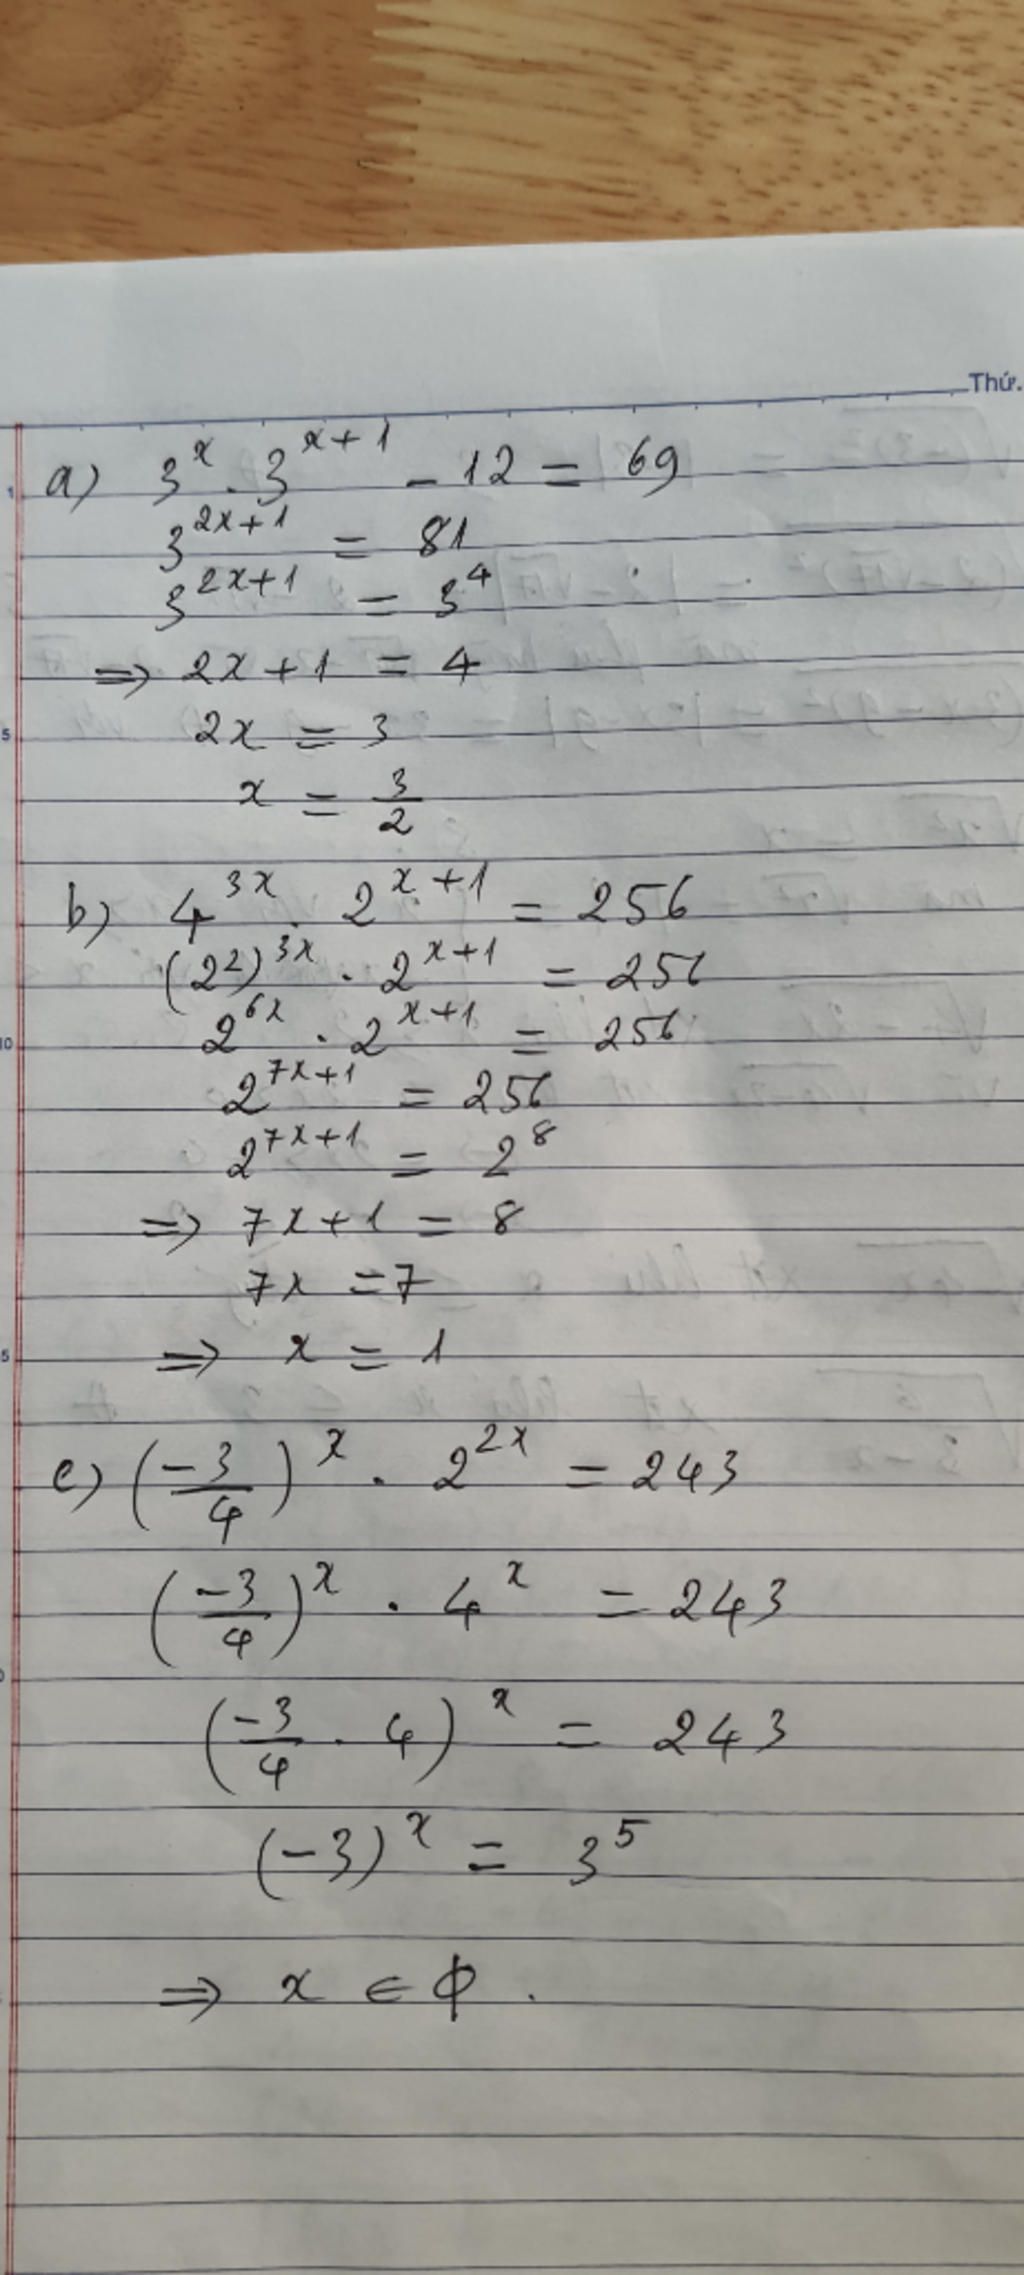 Thứ.
a) 3^x . 3^{x+1} - 12 = 69
3^{2x+1} = 81
3^{2x+1} = 3^4
=> 2x+1 = 4
2x = 3
x = 3/2
b) 4^{3x} . 2^{x+1} = 256
(2^2)^{3x} . 2^{x+1} = 256
2^{6x} . 2^{x+1} = 256
2^{7x+1} = 256
2^{7x+1} = 2^8
=> 7x+1 = 8
7x = 7
=> x = 1
c) (-3/4)^x . 2^{2x} = 243
(-3/4)^x . 4^x = 243
(-3/4 . 4)^x = 243
(-3)^x = 3^5
=> x ∈ ϕ .